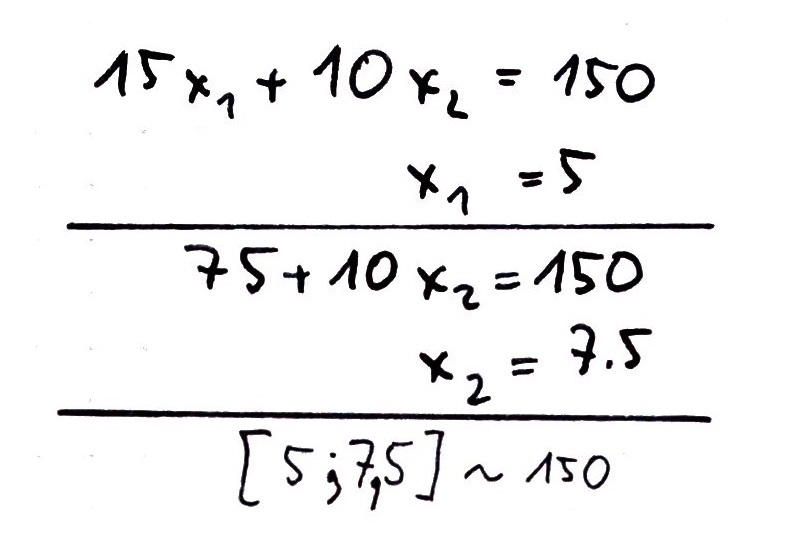 15x₁ + 10x₂ = 150
x₁ = 5
75 + 10x₂ = 150
x₂ = 7.5
[5;7,5] ~ 150